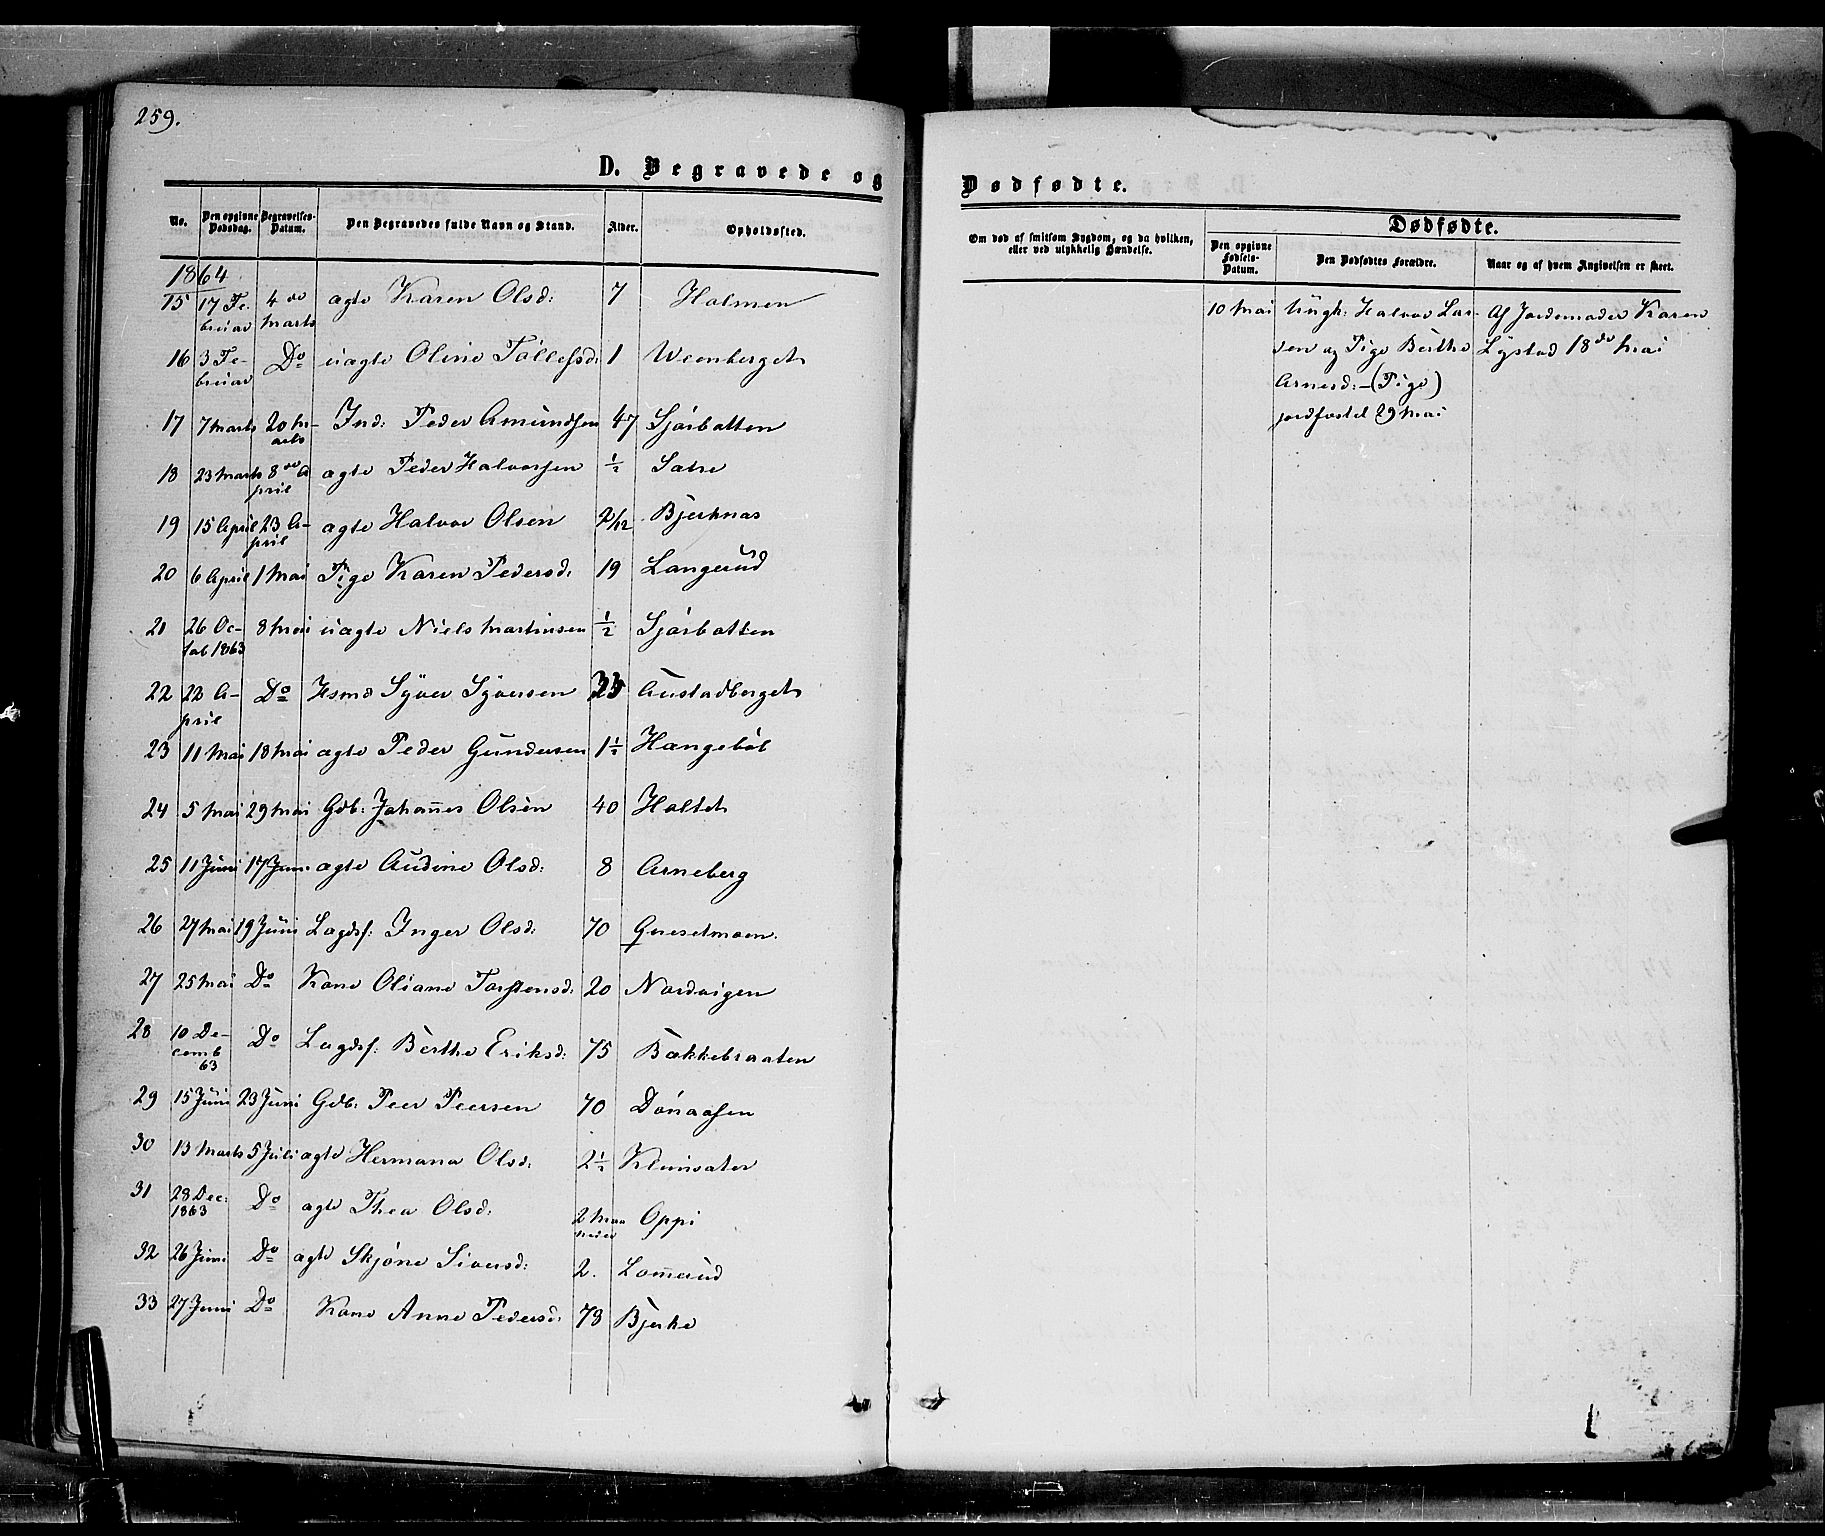 259.
D. Begravede og
No. Den opgivne Dødsdag. Begravelses-Datum. Den Begravedes fulde Navn og Stand. Alder. Opholdssted.
1864
15 17 Februar 4de Marts ægte Karen Olsd: 7 Holmen
16 3 Februar Do uægte Oline Tollefsd: 1 Weenberget
17 7 Marts 20 Marts Ind: Peder Amundsen 47 Sjørbotten
18 23 Marts 8de April ægte Peder Halvorsen ½ Sætre
19 15 April 23 April ægte Halvor Olsen 2/12 Bjerknæs
20 6 April 1 Mai Pige Karen Pedersd: 19 Langerud
21 26 Octob 1863 8 Mai uægte Niels Martinsen ½ Sjørbotten
22 22 April Do Husmd Syver Syversen Austadberget
23 11 Mai 18 Mai ægte Peder Gundersen 1½ Hangeböl
24 5 Mai 29 Mai Gdb: Johannes Olsen 40 Holtet
25 11 Juni 17 Juni ægte Audine Olsd: 8 Arneberg
26 27 Mai 19 Juni Lægdsf: Inger Olsd: 70 Grusetmoen.
27 25 Mai Do Kone Oliane Torstensd: 20 Nordvigen
28 10 Decemb 63 Do Lægdsf: Berthe Eriksd: 75 Bækkebraaten
29 15 Juni 23 Juni Gdb: Peer Peersen 70 Dönaasen
30 13 Marts 5 Juli ægte Hermana Olsd: 2½ Kleimsæter
31 28 Dec: 1863 Do ægte Thea Olsd: 2 Maaneder Oppi
32 26 Juni Do ægte Skjöne Siversd: 2. Lomerud
33 27 Juni Do Kone Anne Pedersd: 78 Bjerke
Dødfødte.
Om død af smitsom Sygdom, og da hvilken, eller ved ulykkelig Hændelse.
Dødfødte.
Den opgivne Fødsels-Datum. Den Dødfødtes Forældre. Naar og af hvem Angivelsen er skeet.
10 Mai Ungk: Halvor Lar- Af Jordemoder Karen
sen og Pige Berthe Lystad 18de Mai
Arnesd: - (Pige)
jordfæstet 29 Mai